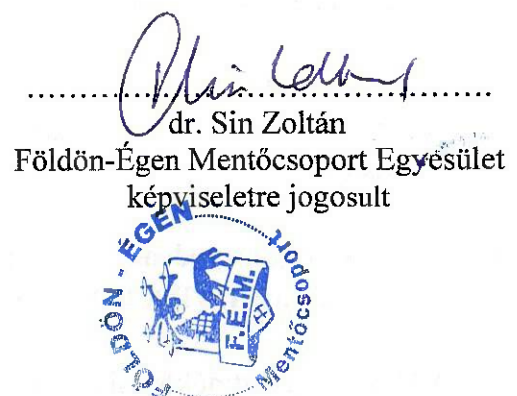 dr. Sin Zoltán
Földön-Égen Mentőcsoport Egyesület
képviseletre jogosult
FÖLDÖN - ÉGEN
Mentőcsoport
F.E.M.